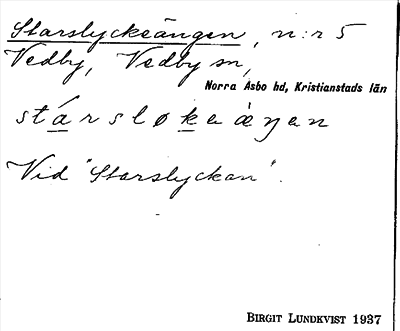 Starslyckeängen, n:r 5
Vedby, Vedby sn,
Norra Åsbo hd, Kristianstads län
stársløkeäŋen
Vid "Starslyckan".
BIRGIT LUNDKVIST 1937